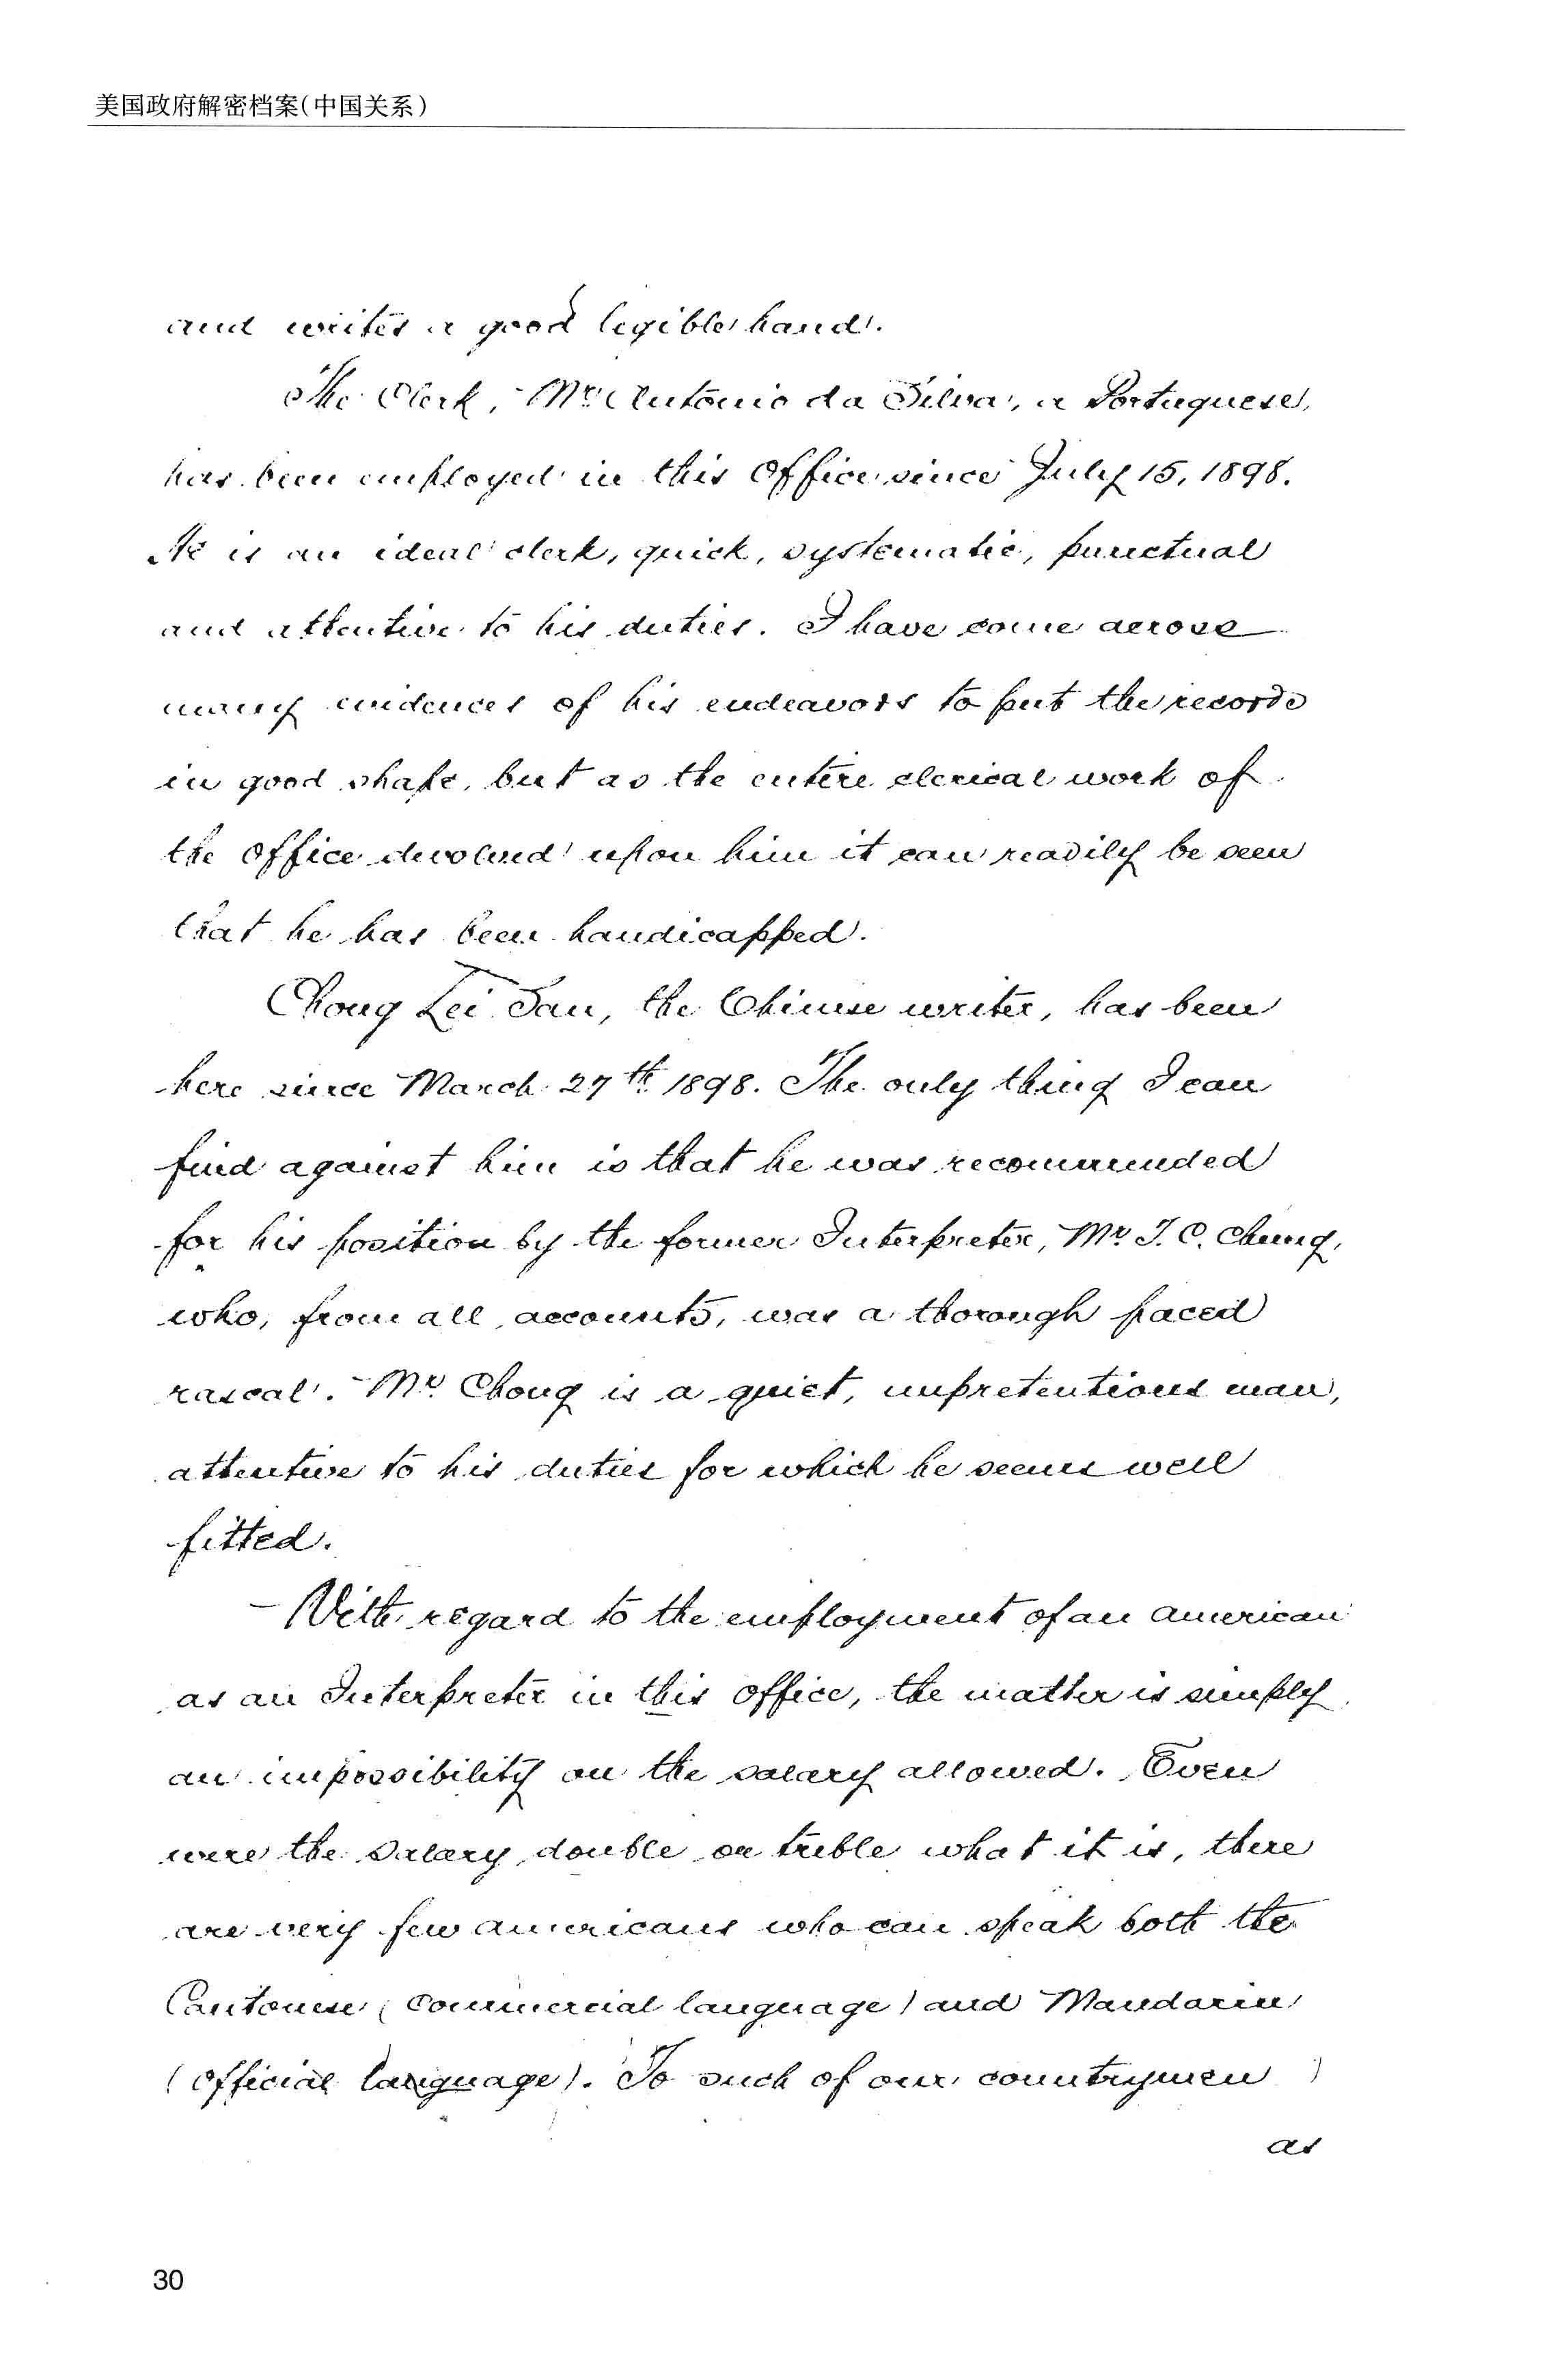 美国政府解密档案(中国关系)
and writes a good legible hand.
The Clerk, Mr Antonio da Silva, a Portuguese,
has been employed in this Office since July 15, 1898.
He is an ideal clerk, quick, systematic, punctual
and attentive to his duties. I have come across
many evidences of his endeavors to put the records
in good shape, but as the entire clerical work of
the Office devolved upon him it can readily be seen
that he has been handicapped.
Chong Lei San, the Chinese writer, has been
here since March 27th 1898. The only thing I can
find against him is that he was recommended
for his position by the former Interpreter, Mr
who, from all accounts, was a thorough paced
rascal. Mr Chong is a quiet, unpretentious man,
attentive to his duties for which he seems well
fitted.
With regard to the employment of an American
as an Interpreter in this office, the matter is simply
an impossibility on the salary allowed. Even
were the salary double or treble what it is, there
are very few Americans who can speak both the
Cantonese (Commercial language) and Mandarin
(Official language). To such of our countrymen
as
30